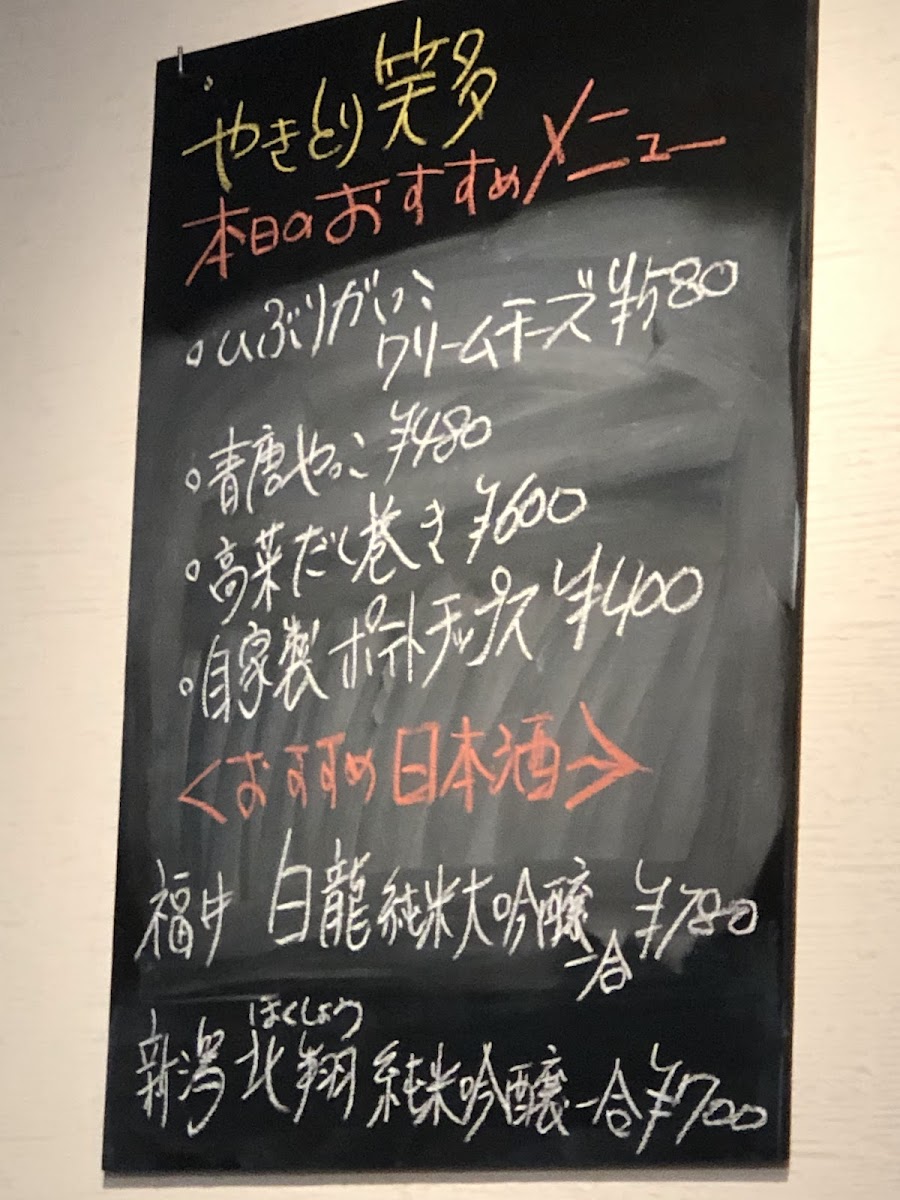 やきとり笑多
本日のおすすめメニュー
いぶりがっこ
クリームチーズ ¥580
青唐やっこ ¥480
高菜だし巻き ¥600
自家製ポテトチップス ¥400
<おすすめ日本酒>
福井 白龍 純米大吟醸 一合 ¥780
ほくしょう
新潟 北翔 純米吟醸 一合 ¥700